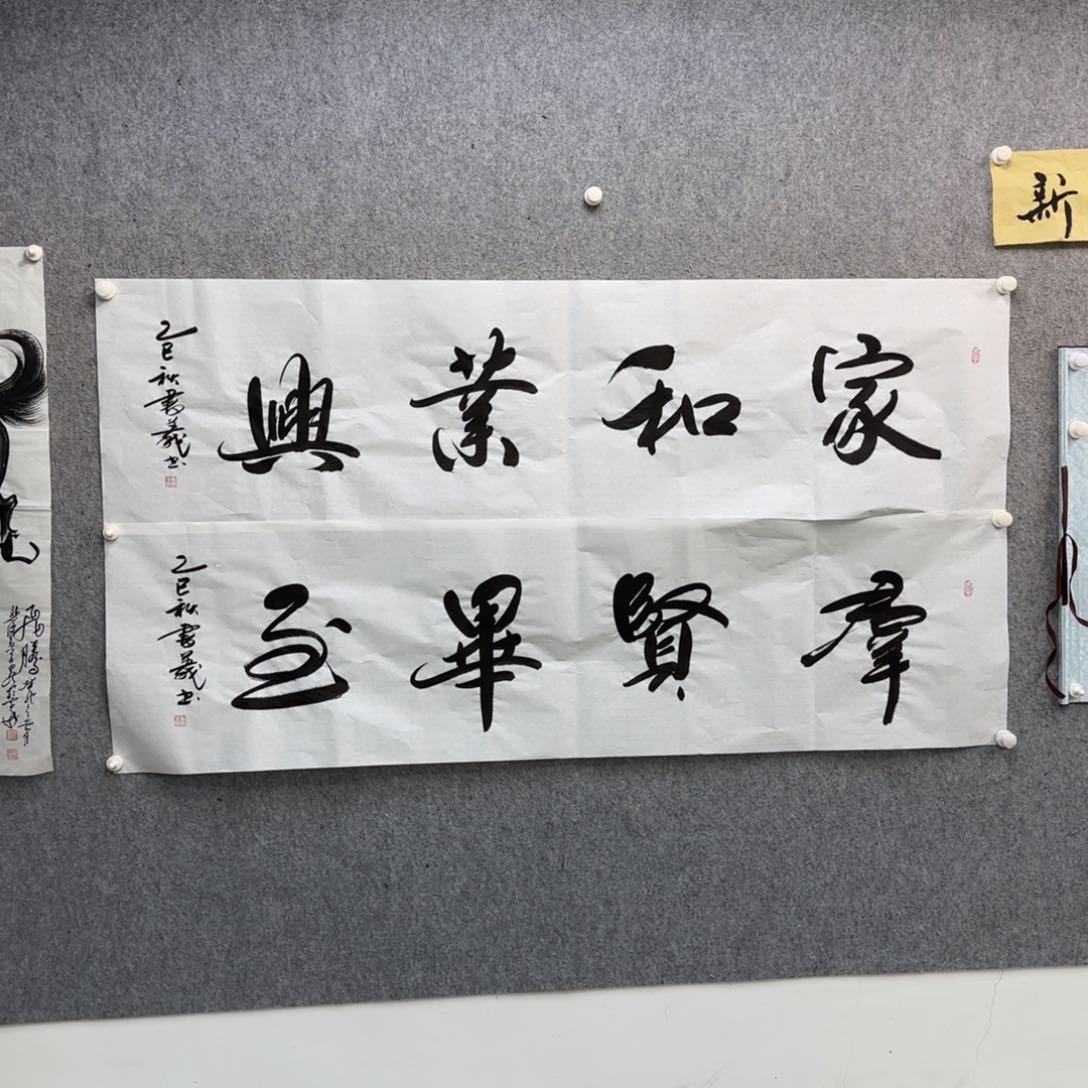 家和業興
乙巳秋書義書
羣賢畢至
乙巳秋書義書
新